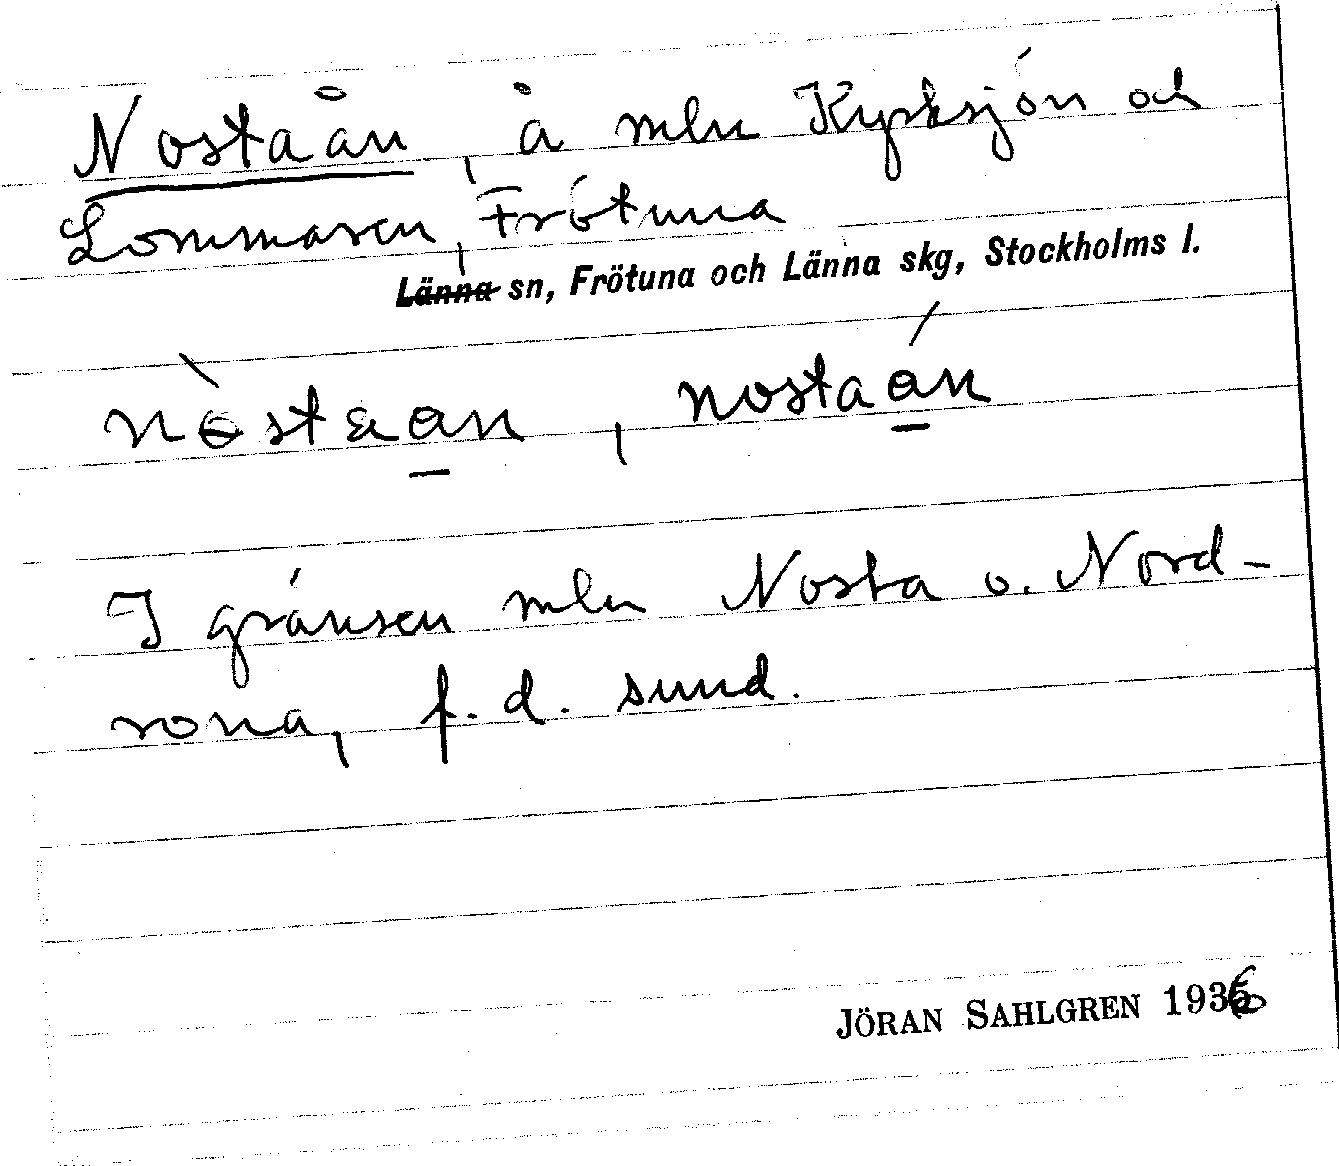 Nostaån, å mln Kyrksjön och
Lommaren, Frötuna
Länna sn, Frötuna och Länna skg, Stockholms l.
nòstaan, nostaán
I gränsen mln Nosta o. Nord-
rona, f. d. sund.
JÖRAN SAHLGREN 1936